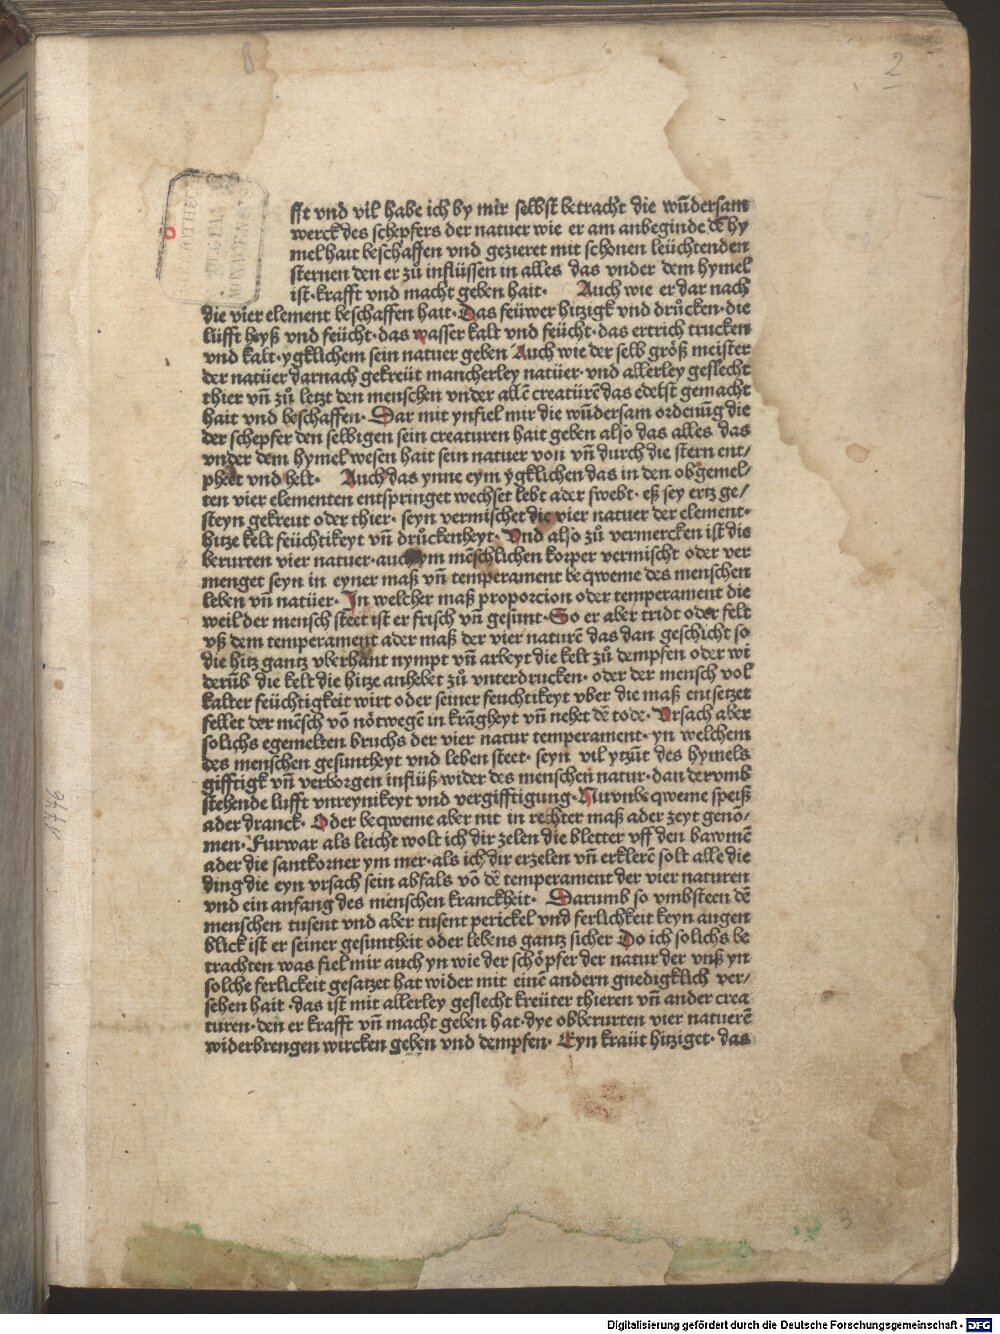 2
fft vnd vil habe ich by mir selbst betracht die wūdersam
werck des schepfers der natuer wie er am anbeginde dē hy
mel hait beschaffen vnd gezieret mit schonen leüchtenden
sternen den er zů inflüssen in alles das vnder dem hymel
ist· krafft vnd macht geben hait· Auch wie er dar nach
die vier element beschaffen hait· Das feüwer hitzigk vnd drůcken· die
lüfft heyß vnd feücht· das wasser kalt vnd feücht· das ertrich trucken
vnd kalt· ygklichem sein natuer geben Auch wie der selb größ meister
der natüer darnach gekreüt mancherley natüer· vnd allerley geslecht
thier vn̄ zů letzt den menschen vnder allē creatürē das edelst gemacht
hait vnd beschaffen· Dar mit ynfiel mir die wūdersam ordenūg die
der schepfer den selbigen sein creaturen hait geben also das alles das
vnder dem hymel wesen hait sein natuer von vn̄ durch die stern ent/
phelt vnd helt· Auch das ynne eym ygklichen das in den obgemel/
ten vier elementen entspringet wechset lebt ader swebt· eß sey ertz ge/
steyn gekreut oder thier· seyn vermischet die vier natuer der element·
hitze kelt feüchtikeyt vn̄ drůckenheyt· Vnd also zů vermercken ist dis
berurten vier natuer· auch ym mēschlichen korper vermischt oder ver
menget seyn in eyner maß vn̄ temperament beqweme des menschen
leben vn̄ natüer· In welcher maß proporcion oder temperament die
weil der mensch steet ist er frisch vn̄ gesunt· So er aber tridt oder felt
vß dem temperament ader maß der vier naturē das dan geschicht so
die hitz gantz vberhant nympt vn̄ arbeyt die kelt zů dempfen oder wi
derūb die kelt die hitze anhebet zů vnterdrucken· oder der mensch vol
kalter feüchtigkeit wirt oder seiner feuchtikeyt vber die maß entsetzet
fellet der mēsch vō nötwegē in krāgheyt vn̄ nehet dē tode· Vrsach aber
solichs egemelten bruchs der vier natur temperament· yn welchem
des menschen gesuntheyt vnd leben steet· seyn vil ytzūt des hymels
gifftigk vn̄ verborgen inflüß wider des menschen natur· dan der vmb
stehende lufft vnreynikeyt vnd vergifftigung· Nu vnbeqweme speiß
ader dranck· Oder beqweme aber nit in rechter maß ader zeyt genō/
men· Furwar als leicht wolt ich dir zelen die bletter vff den bawmē
ader die santkorner ym mer· als ich dir erzelen vn̄ erklerē solt alle die
ding die eyn vrsach sein abfals vō dē temperament der vier naturen
vnd ein anfang des menschen kranckheit· Darumb so vmbsteen dē
menschen tusent vnd aber tusent perickel vnd ferlichkeit keyn augen
blick ist er seiner gesuntheit oder lebens gantz sicher Do ich solichs be
trachten was fiel mir auch yn wie der schöpfer der natur der vnß yn
solche ferlickeit gesatzet hat wider mit einē andern gnedigklich ver/
sehen hait· das ist mit allerley geslecht kreüter thieren vn̄ ander crea
turen· den er krafft vn̄ macht geben hat· dye obberurten vier natuerē
widerbrengen wircken geben vnd dempfen· Eyn kraüt hitziget· das
3
1776
Digitalisierung gefördert durch die Deutsche Forschungsgemeinschaft - DFG